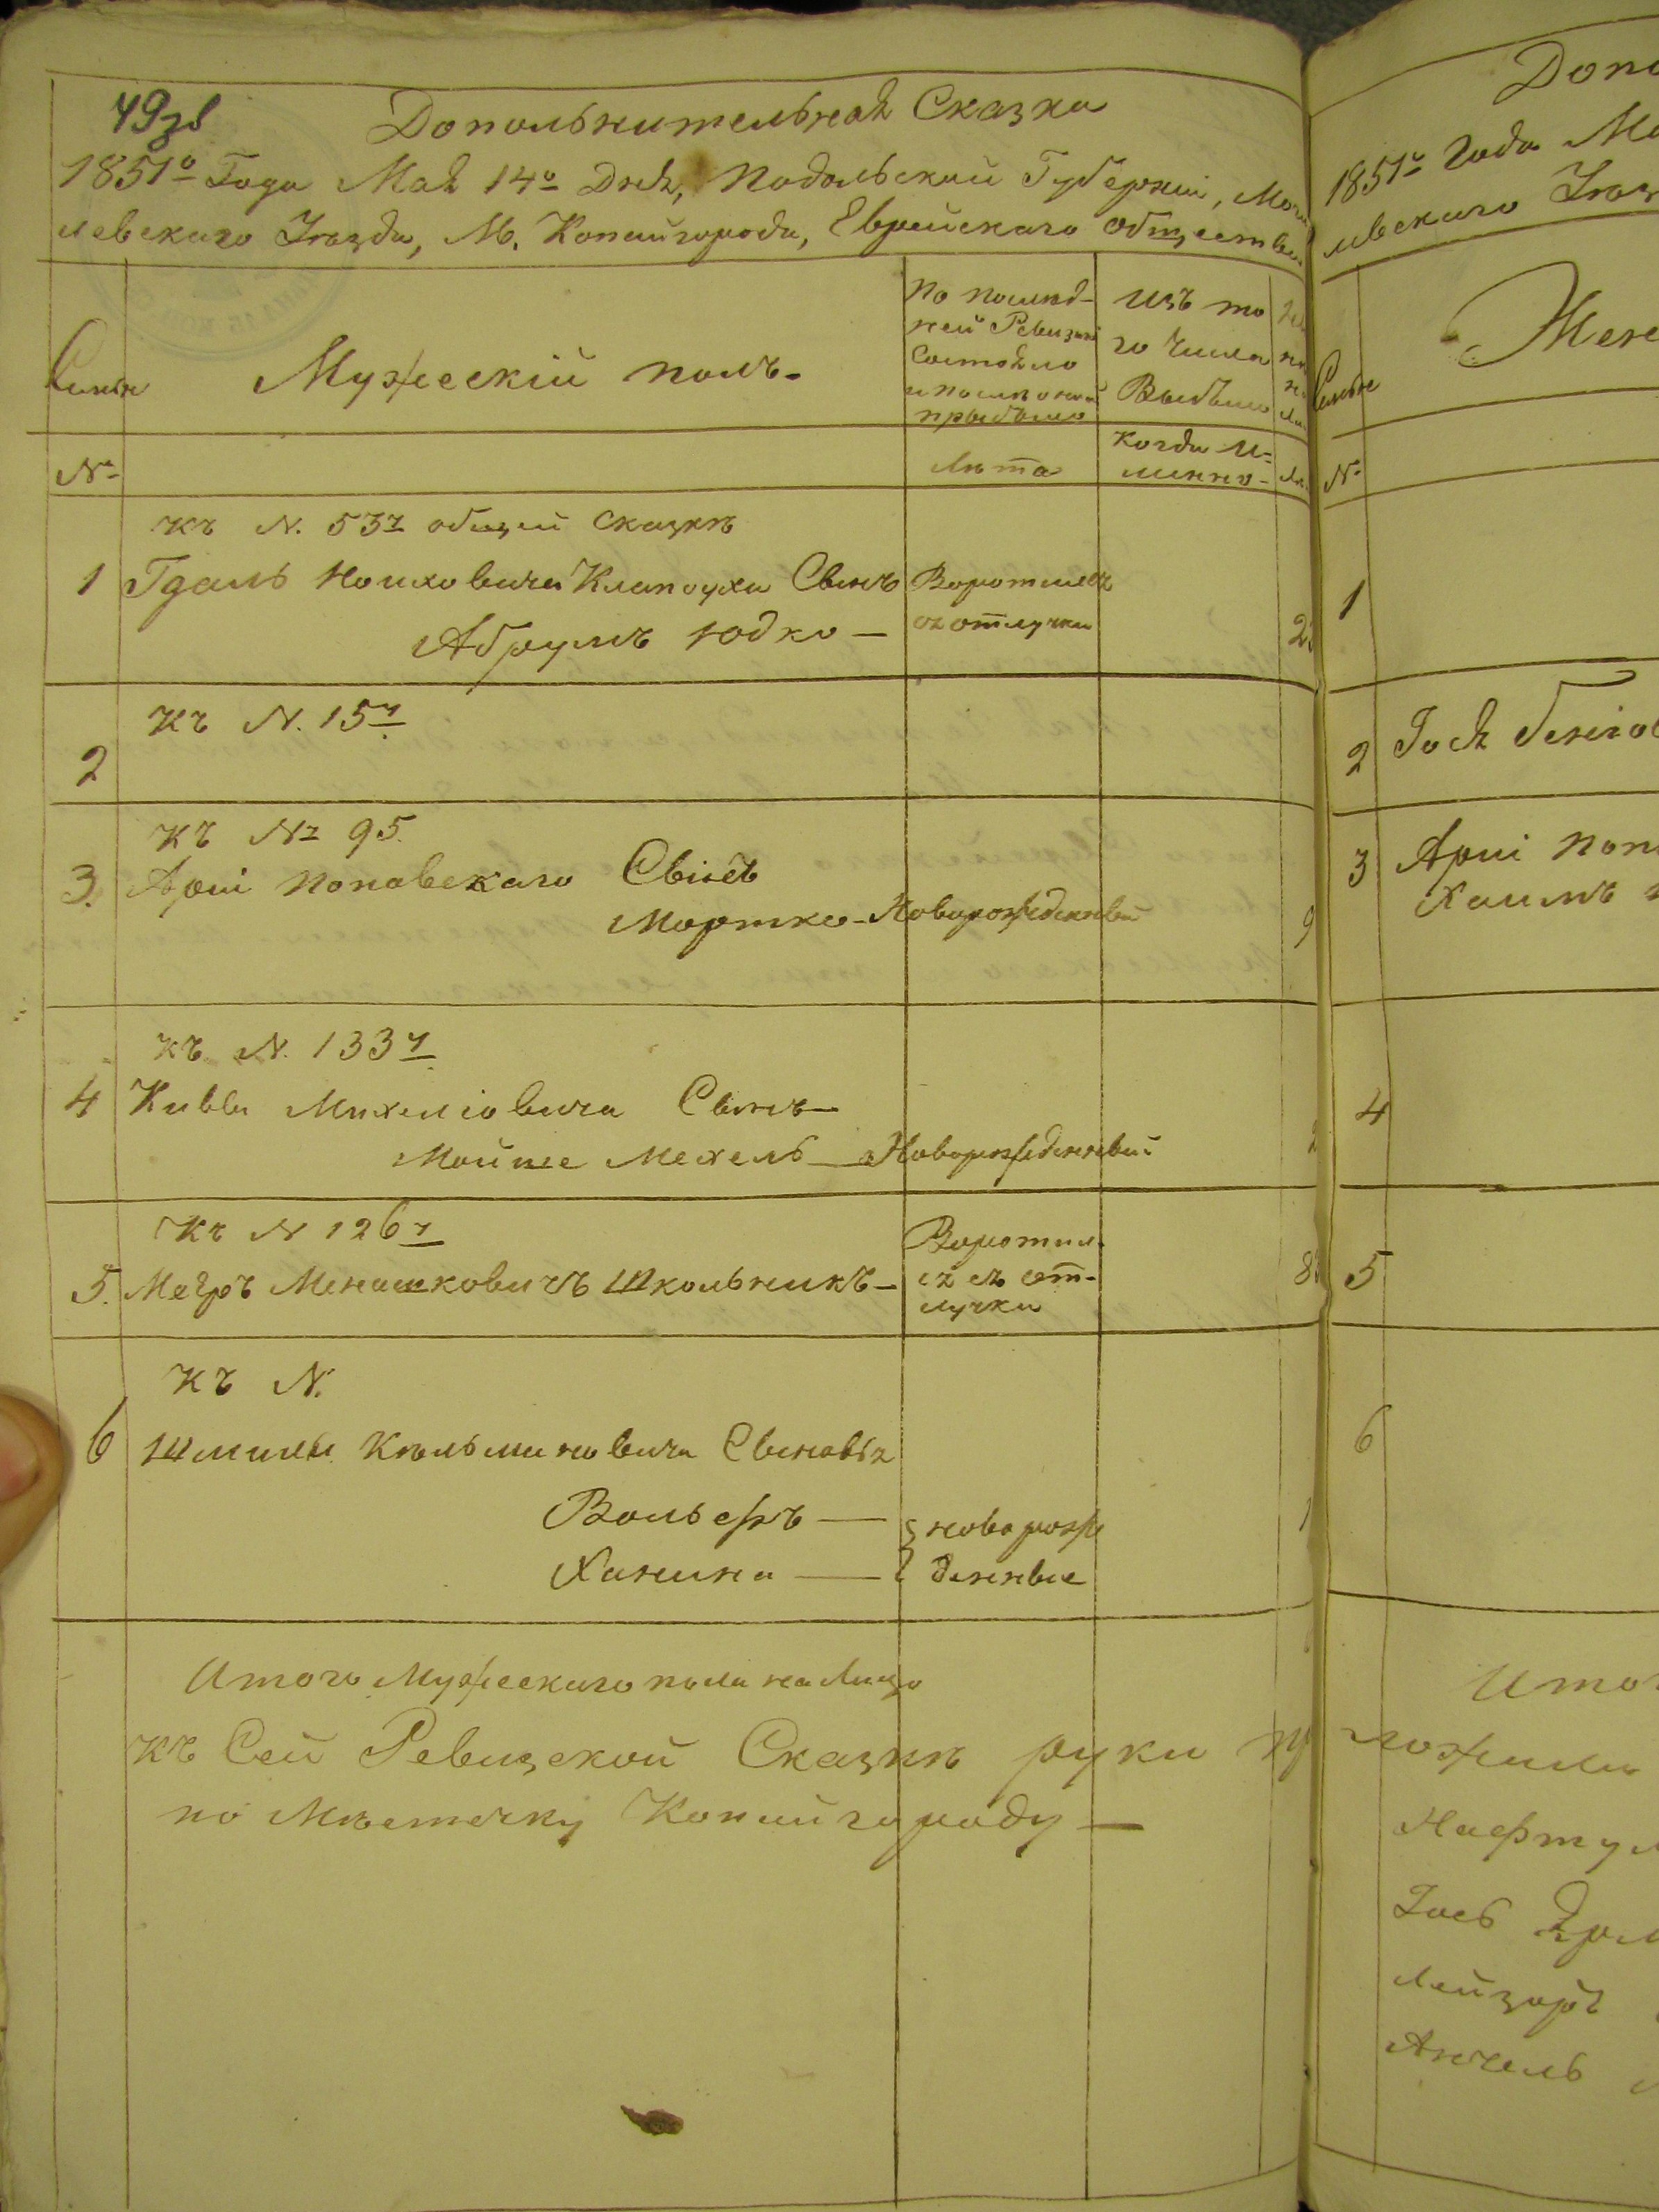 49зв
Дополнительная Сказка
1851о Года Мая 14о Дня, Подольской Губерніи, Моги
левскаго Уѣзда, М. Копайгорода, Еврейскаго общества
Семьи
Мужескій полъ
по послѣд-
ней Ревизіи
состояло
и послѣ оной
прыбыло
изъ то
го числа
Выбыло
№
Лѣта
когда И=
менно
къ N. 53у общей сказкѣ
1 Гдаль Клапоуха Сынъ Воротился
Абрумъ Юдко — съ отлучки
къ N. 15у
2
къ № 95.
3. Арiи Поповскаго Сынъ
Мортко - Новорожденный
9
къ N. 133у
4 Кивы Михелiовича Сынъ
Мойше Мехель — Новорожденный
къ N 126у
5. Мееръ Менашковичъ Школьникъ —
Воротил-
ся съ от-
лучки
къ N.
6 Шмилы Кельмановича Сыновья
Вольфъ —
Ханина —
новорож
денные
Итого Мужескаго пола на Лицо
къ Сей Ревизской Сказкѣ руки пр
по Мѣстечку Копайгороду —
Допо
1851о Года Ма
левскаго Уѣз
Жен
Семьи
№
1
2 Гося
3 Арiи Поп
Хаимъ
4
5
6
Итог
ложили
Нафтул
Лейзоръ
Анчель